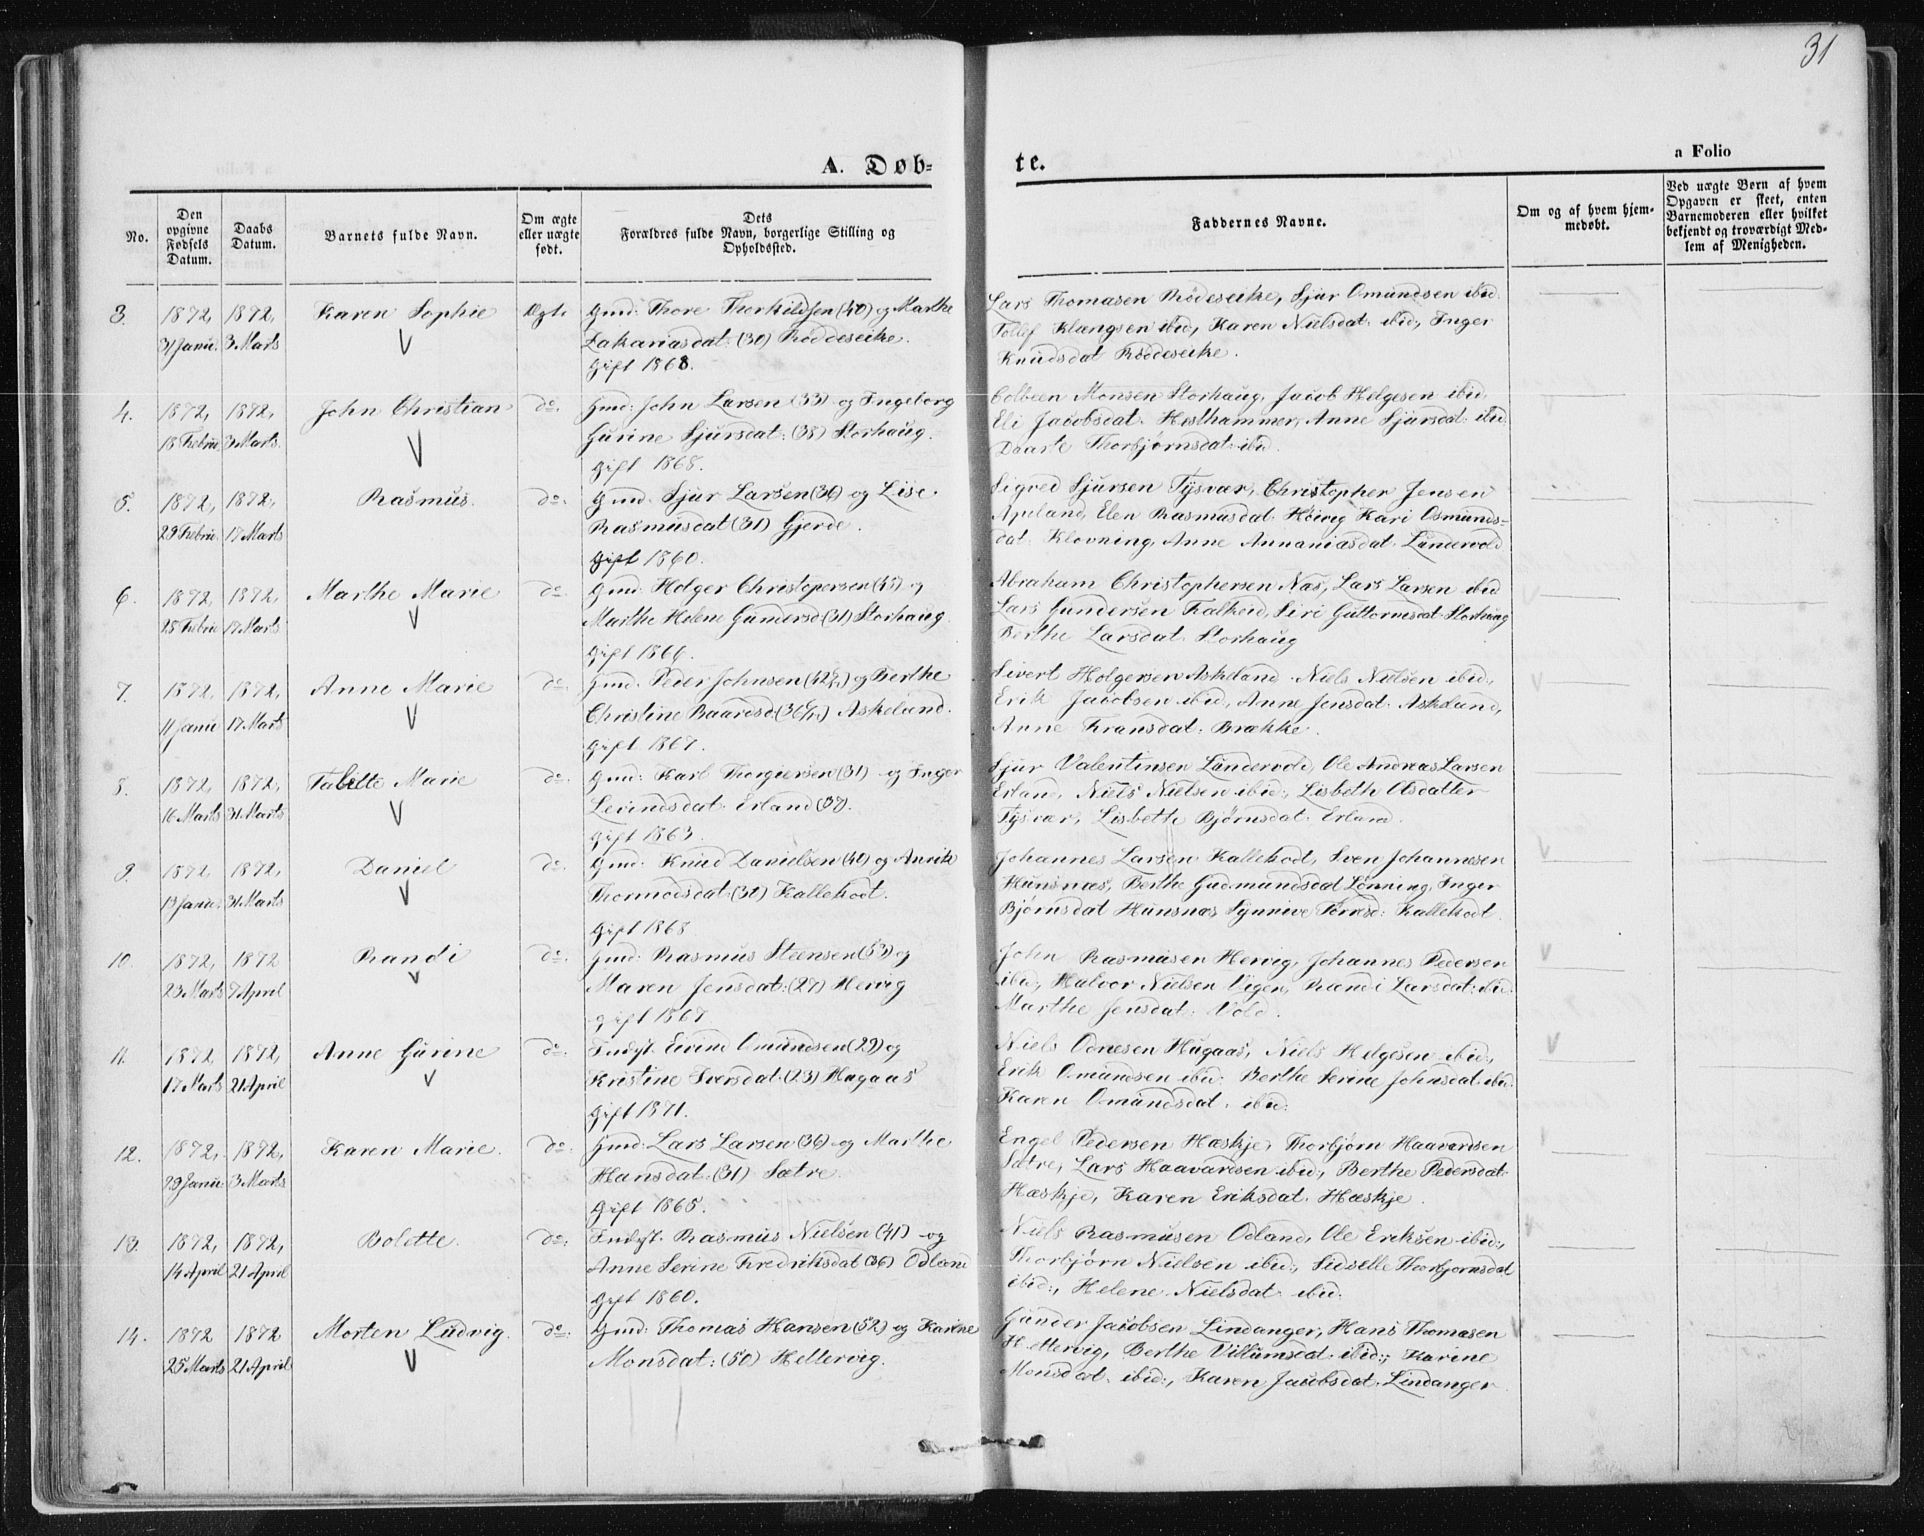 31
A. Døb-
te.
a Folio
No.
Den opgivne Fødsels Datum.
Daabs Datum.
Barnets fulde Navn.
Om ægte eller uægte født.
Dets Forældres fulde Navn, borgerlige Stilling og Opholdssted.
Faddernes Navne.
Om og af hvem hjemmedøbt.
Ved uægte Børn af hvem Opgaven er skeet, enten Barnemoderen eller hvilket bekjendt og troværdigt Medlem af Menigheden.
3. 1872, 1872, Karen Sophie Ægt. Gmd: Thore Thorkildsen (40) og Marthe
31 Janu. 3 Marts Zakariasdat: (30) Røddeseike.
Gift 1868.
Lars Thomasen Rødeseike, Sjur Omundsen ibid.
Tollef Klængsen ibid, Karen Nielsdat ibid, Inger
Knudsdat Røddeseike.
4. 1872, 1872, John Christian do. Gmd: John Larsen (33) og Ingeborg
18 Febru. 3 Marts Gurine Sjursdat: (38) Storhaug.
Gift 1868.
Colbeen Monsen Storhaug, Jacob Helgesen ibid,
Eli Jacobsdat. Hesthammer, Anne Sjursdat: ibid,
Daarte Thorbjørnsdat ibid.
5. 1872, 1872, Rasmus. do. Gmd. Sjur Larsen (36) og Lise
29 Febru. 17 Marts Rasmusdat (31) Gjerde.
Gift 1860.
Sigved Sjursen Tysvær, Christopher Jensen
Apeland, Elen Rasmusdat. Høivig Kari Osmunds-
dat. Klovning, Anne Annaniasdat. Landervold
6. 1872, 1872, Marthe Marie do Gmd: Holger Christopersen (45) og
25 Febru 17 Marts Marthe Helene Gundersd (31) Storhaug.
Gift 1866.
Abraham Christophersen Nas, Lars Larsen ibid
Lars Gundersen Falkeid, Siri Guttormsdat Storhaug
Berthe Larsdat. Storhaug
7. 1872, 1872, Anne Marie do Gmd. Peder Johnsen (42) og Berthe
11 Janu 17 Marts Christine Baardsd (36) Askeland.
Gift 1867.
Sivert Holgersen Askeland. Niels Nielsen ibid,
Erik Jacobsen ibid, Anne Jensdat. Askeland,
Anne Fransdat: Brække.
8. 1872, 1872, Tabitte Marie do. Gmd: Karl Thorgiersen (31) og Inger
16 Marts 31 Marts Levindsdat. Erland (37).
Gift 1863.
Sjur Valentinsen Landervold, Ole Andreas Larsen
Erland, Niels Nielsen ibid:, Lisbeth Olsdatter
Tysvær, Lisbette Bjørnsdat. Erland.
9. 1872, 1872, Daniel do. Gmd. Knud Danielsen (40) og Anrik
13 Janu. 31 Marts Thormodsdat (32) Kallekodt.
Gift 1868
Johannes Larsen Kallekodt, Sven Johannesen
Hunsnæs, Berthe Gudmundsdat Lønning, Inger
Bjørnsdat Hunsnæs Synnive Kallekodt.
10. 1872, 1872 Randi do. Gmd: Rasmus Steensen (53) og
23 Marts 7 April Maren Jensdat: (27) Hervig
gift 1867
John Rasmusen Hervig, Johannes Pedersen
ibid, Halvor Nielsen Vigen, Randi Larsdat: ibid.
Marthe Jensdat. Vold.
11. 1872, 1872, Anne Gurine do. Indst. Eivind Omundsen (29) og
17 Marts 21 April Kristine Sversdat (23) Hagaas
Gift 1871.
Niels Odnesen Hugaas, Niels Helgesen ibid:,
Erik Omundsen ibid: Berthe Serine Johnsdat ibid.
Karen Omundsdat. ibid:
12. 1872, 1872, Karen Marie. do: Gmd: Lars Larsen (36) og Marthe
29 Janu. 3 Marts Hansdat: (31) Sætre.
Gift 1865.
Engel Pedersen Hæskje, Thorbjørn Haavardsen
Sætre, Lars Haavardsen ibid:, Berthe Pedersdat
Hæskje, Karen Eriksdat. Hæskje.
13. 1872, 1872, Bolette. do: Indst. Rasmus Nielsen (41) og
14 April 21 April Anne Serine Fredriksdat (36) Odland
Gift 1860.
Niels Rasmusen Odland, Ole Eriksen ibid:,
Thorbjørn Nielsen ibid:, Sidselle Thorbjornsdat
ibid:, Helene Nielsdat ibid.
14. 1872 1872 Morten Ludvig. do: Gmd: Thomas Hansen (52) og Karine
25 Marts 21 April Monsdat: (50) Hellervig.
Gunder Jacobsen Lindanger, Hans Thomasen
Hellervig, Berthe Villumsdat ibid:, Karine
Monsdat. ibid:, Karen Jacobsdat. Lindanger